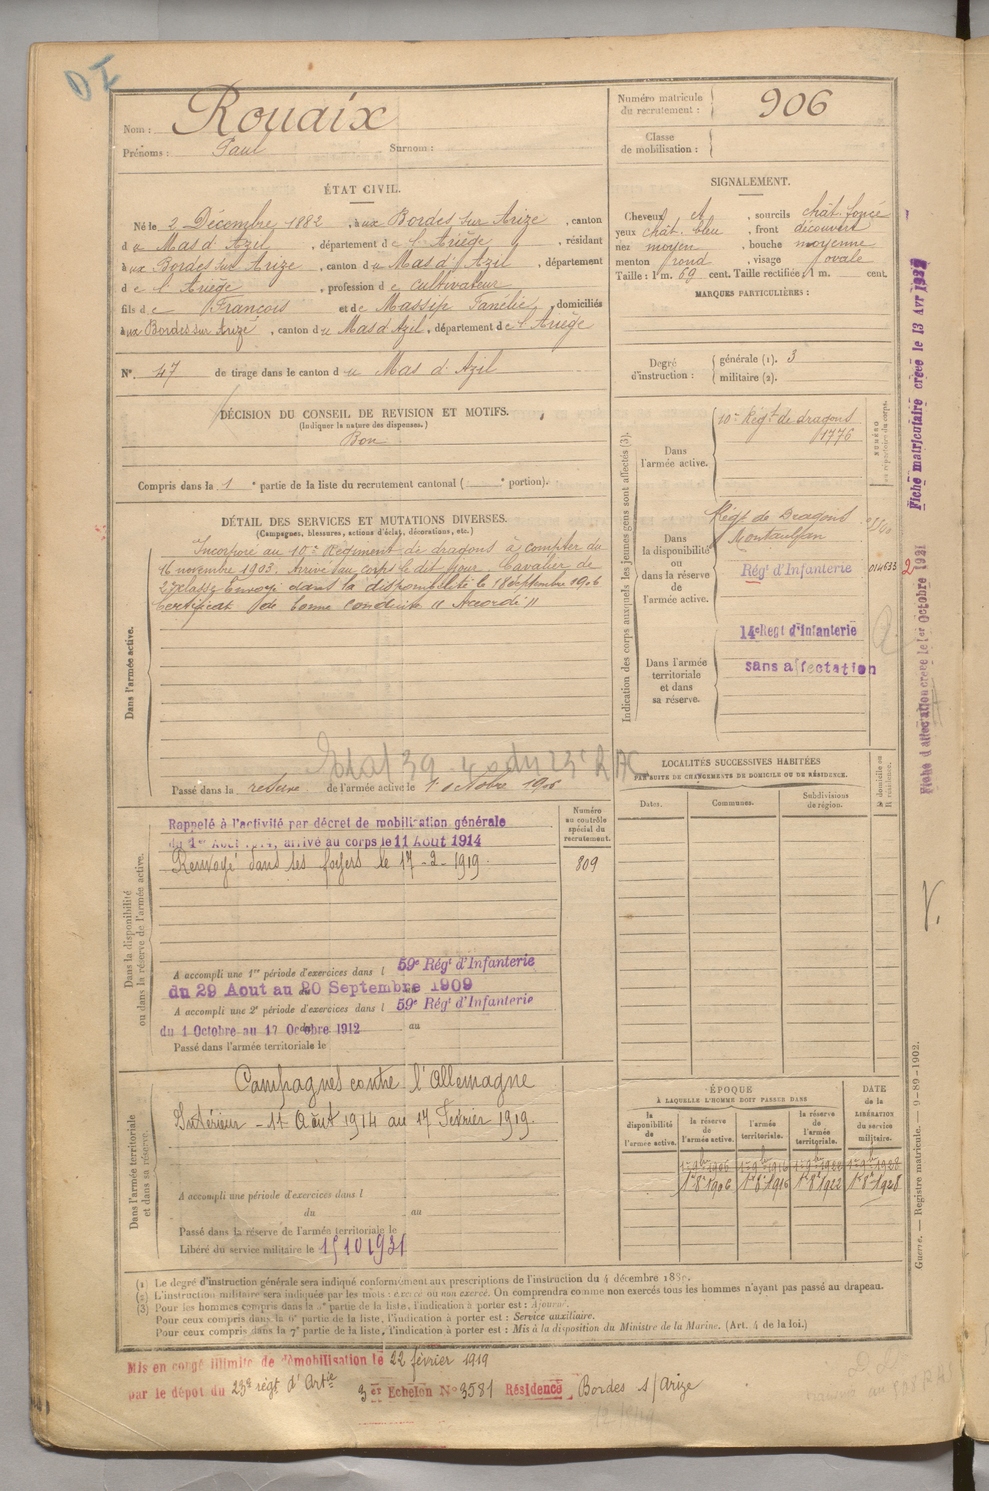 DI
Nom : Rouaix
Prénoms : Paul Surnom :
Numéro matricule du recrutement : 906
Classe de mobilisation :
ÉTAT CIVIL.
Né le 2 Décembre 1882, à aux Bordes sur Arize, canton
du Mas d'Azil, département de l'Ariège, résidant
à aux Bordes sur Arize, canton du Mas d'Azil, département
de l'Ariège, profession de cultivateur
fils de François et de Massip Fanélie, domiciliés
à aux Bordes sur Arize, canton du Mas d'Azil, département de l'Ariège
N°. 47 de tirage dans le canton du Mas d'Azil
SIGNALEMENT.
Cheveux et, sourcils chât. foncé
yeux chât. bleu, front découvert
nez moyen, bouche moyenne
menton rond, visage ovale
Taille : 1 m. 69 cent. Taille rectifiée, 1 m. cent.
MARQUES PARTICULIÈRES :
Degré d'instruction : générale (1). 3
militaire (2).
DÉCISION DU CONSEIL DE REVISION ET MOTIFS.
(Indiquer la nature des dispenses.)
Bon
Compris dans la 1e partie de la liste du recrutement cantonal ( e portion).
DÉTAIL DES SERVICES ET MUTATIONS DIVERSES.
(Campagnes, blessures, actions d'éclat, décorations, etc.)
Dans l'armée active.
Incorporé au 10e Régiment de dragons à compter du
16 novembre 1903. Arrivé au corps le dit jour Cavalier de
2e classe Envoyé dans la disponibilité le 18 septembre 1906
Certificat de bonne conduite "Accordé"
Passé dans la reserve de l'armée active le 1er octobre 1906
Indication des corps auxquels les jeunes gens sont affectés (3).
NUMÉRO au répertoire du corps.
Dans l'armée active.
10e Régt de dragons
1776
Dans la disponibilité ou dans la réserve de l'armée active.
Régt de Dragons
Montauban
Régt d'Infanterie 014633
14e Regt d'infanterie
Dans l'armée territoriale et dans sa réserve.
sans affectation
Fiche matriculaire créée le 13 Avr 1932
Fiche d'affectation créée le 1er Octobre 1921
LOCALITÉS SUCCESSIVES HABITÉES
PAR SUITE DE CHANGEMENTS DE DOMICILE OU DE RÉSIDENCE.
Dates. Communes. Subdivisions de région. D domicile ou R résidence.
Dans la disponibilité ou dans la réserve de l'armée active.
Rappelé à l'activité par décret de mobilisation générale
du 1er Aout 1914, arrivé au corps le 11 Aout 1914
Renvoyé dans ses foyers le 17-2-1919.
Numéro au contrôle spécial du recrutement.
809
A accompli une 1re période d'exercices dans l 59e Régt d'Infanterie
du 29 Aout au 20 Septembre 1909
A accompli une 2e période d'exercices dans l 59e Régt d'Infanterie
du 1 Octobre au 17 Octobre 1912 au
Passé dans l'armée territoriale le
Dans l'armée territoriale et dans sa réserve.
Campagnes contre l'Allemagne
Intérieur - 11 Août 1914 au 17 Février 1919.
A accompli une période d'exercices dans l
du au
Passé dans la réserve de l'armée territoriale le
Libéré du service militaire le 15 10 1931
ÉPOQUE
À LAQUELLE L'HOMME DOIT PASSER DANS
la disponibilité de l'armée active. la réserve de l'armée active. l'armée territoriale. la réserve de l'armée territoriale.
DATE de la LIBÉRATION du service militaire.
1er 9bre 1906 1er 9bre 1916 1er 9bre 1922 1er 9bre 1928
1er 8e 1906 1er 8e 1916 1er 8e 1922 1er 8e 1928
Guerre. — Registre matricule. — 9-89-1902.
(1) Le degré d'instruction générale sera indiqué conformément aux prescriptions de l'instruction du 4 décembre 1889.
(2) L'instruction militaire sera indiquée par les mots : exercé ou non exercé. On comprendra comme non exercés tous les hommes n'ayant pas passé au drapeau.
(3) Pour les hommes compris dans la 5e partie de la liste, l'indication à porter est : Ajourné.
Pour ceux compris dans la 6e partie de la liste, l'indication à porter est : Service auxiliaire.
Pour ceux compris dans la 7e partie de la liste, l'indication à porter est : Mis à la disposition du Ministre de la Marine. (Art. 4 de la loi.)
Mis en congé illimité de démobilisation le 22 février 1919
par le dépot du 23e régt d'Artie 3 er Echelon N° 3581 Résidence Bordes s/Arize